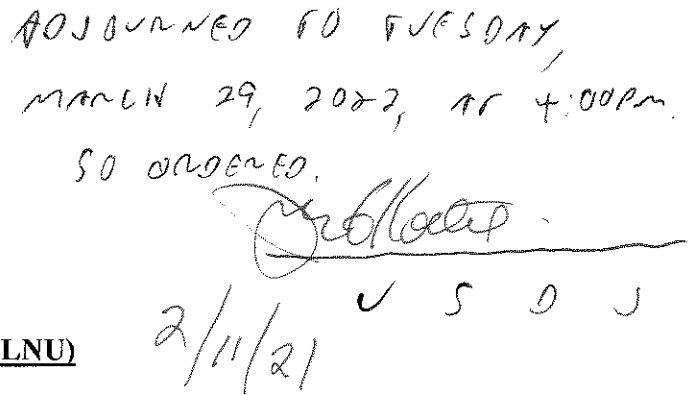 ADJOURNED TO TUESDAY,
MARCH 29, 2022, AT 4:00PM.
SO ORDERED.
USDJ
LNU)
2/11/21